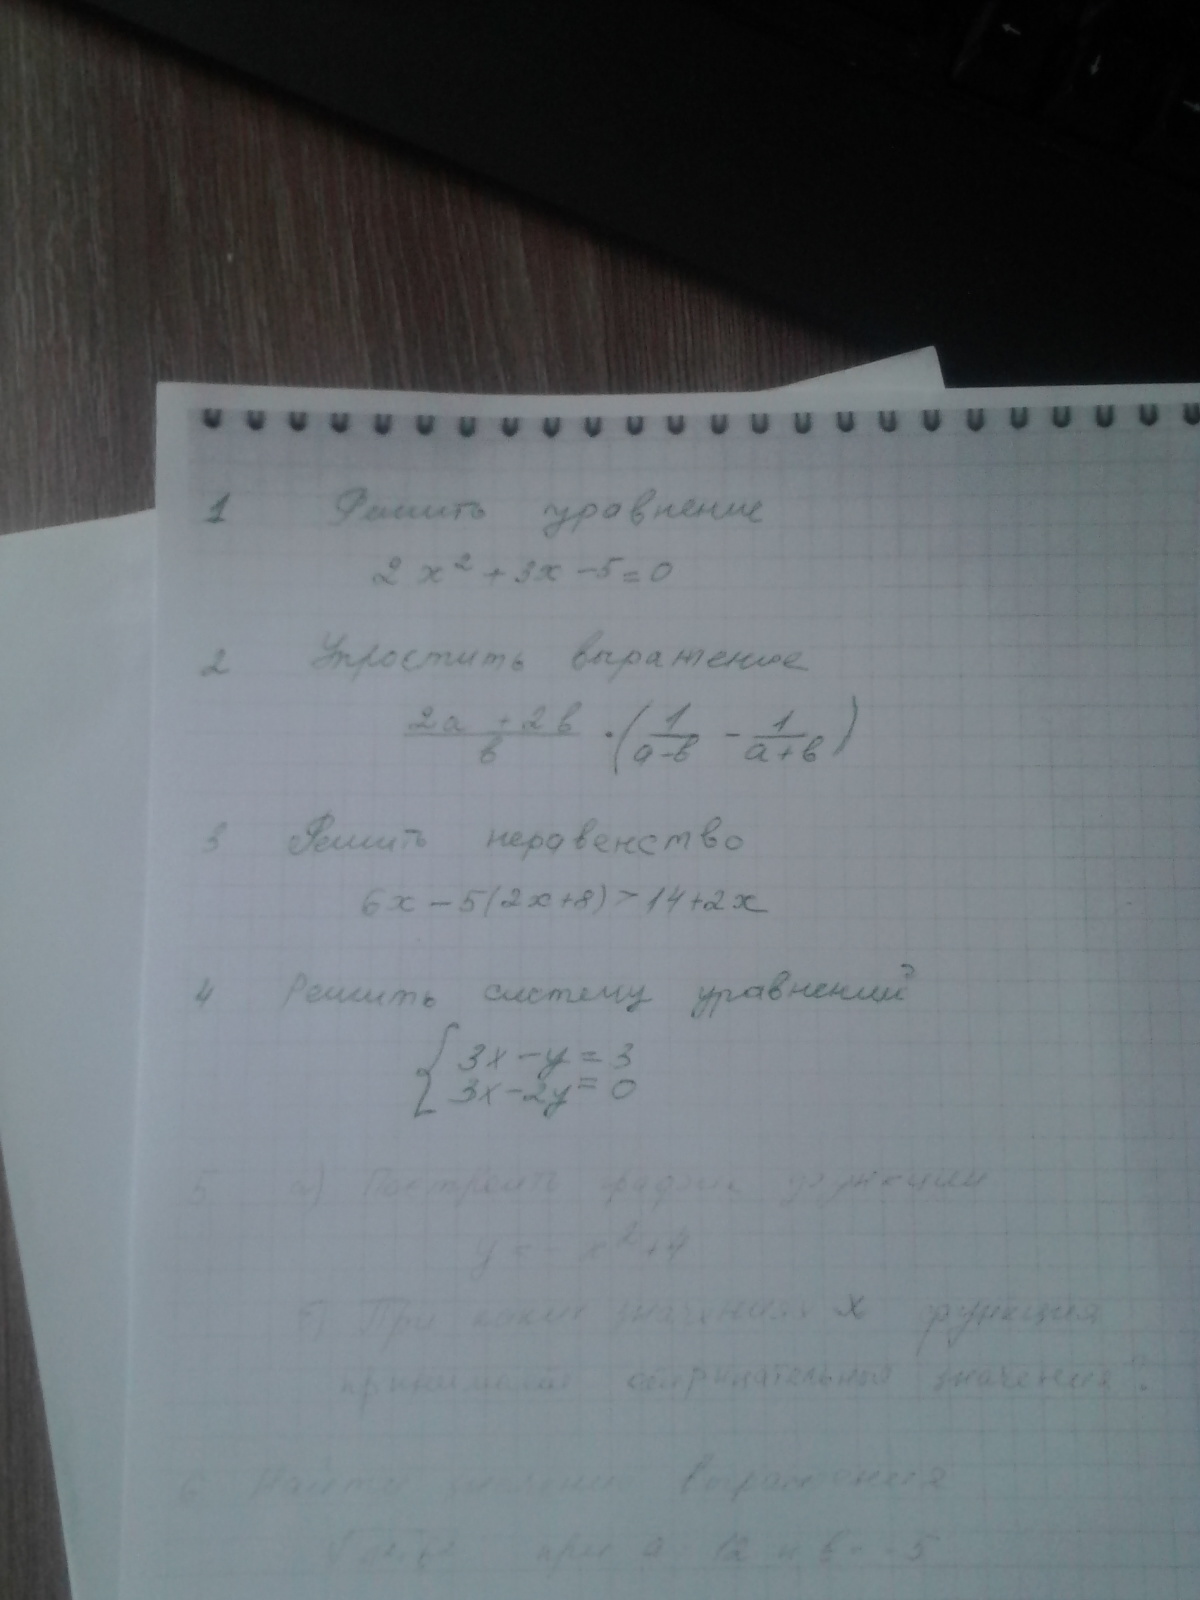 1 Решить уравнение
2x² + 3x - 5 = 0
2 Упростить выражение
(2a + 2b)/b · (1/(a-b) - 1/(a+b))
3 Решить неравенство
6x - 5(2x+8) > 14+2x
4 Решить систему уравнений
{ 3x - y = 3
3x - 2y = 0
5 а) Построить график функции
y = - x² + 4
б) При каких значениях x функция
принимает отрицательные значения?
6 Найти значение выражения
при a = 12 и b = -5